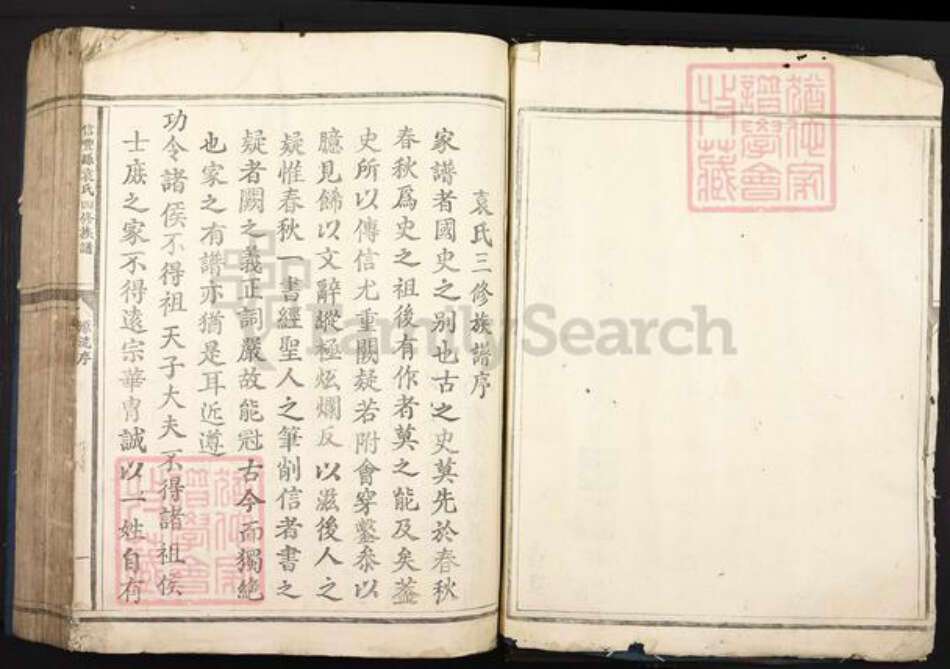 袁氏三修族譜序
家譜者國史之别也古之史莫先於春秋
春秋爲史之祖後有作者莫之能及矣葢
史所以傳信尤重闕疑若附會穿鑿叅以
臆見餙以文辭縱極炫爛反以滋後人之
疑惟春秋一書經聖人之筆削信者書之
疑者闕之義正詞嚴故能冠古今而獨絶
也家之有譜亦猶是耳近遵
功令諸侯不得祖天子大夫不得諸祖侯
士庶之家不得遠宗華胄誠以一姓自有
信豐縣袁氏四修族譜
源流序
一
FamilySearch
譜學會
收藏
譜學會
收藏